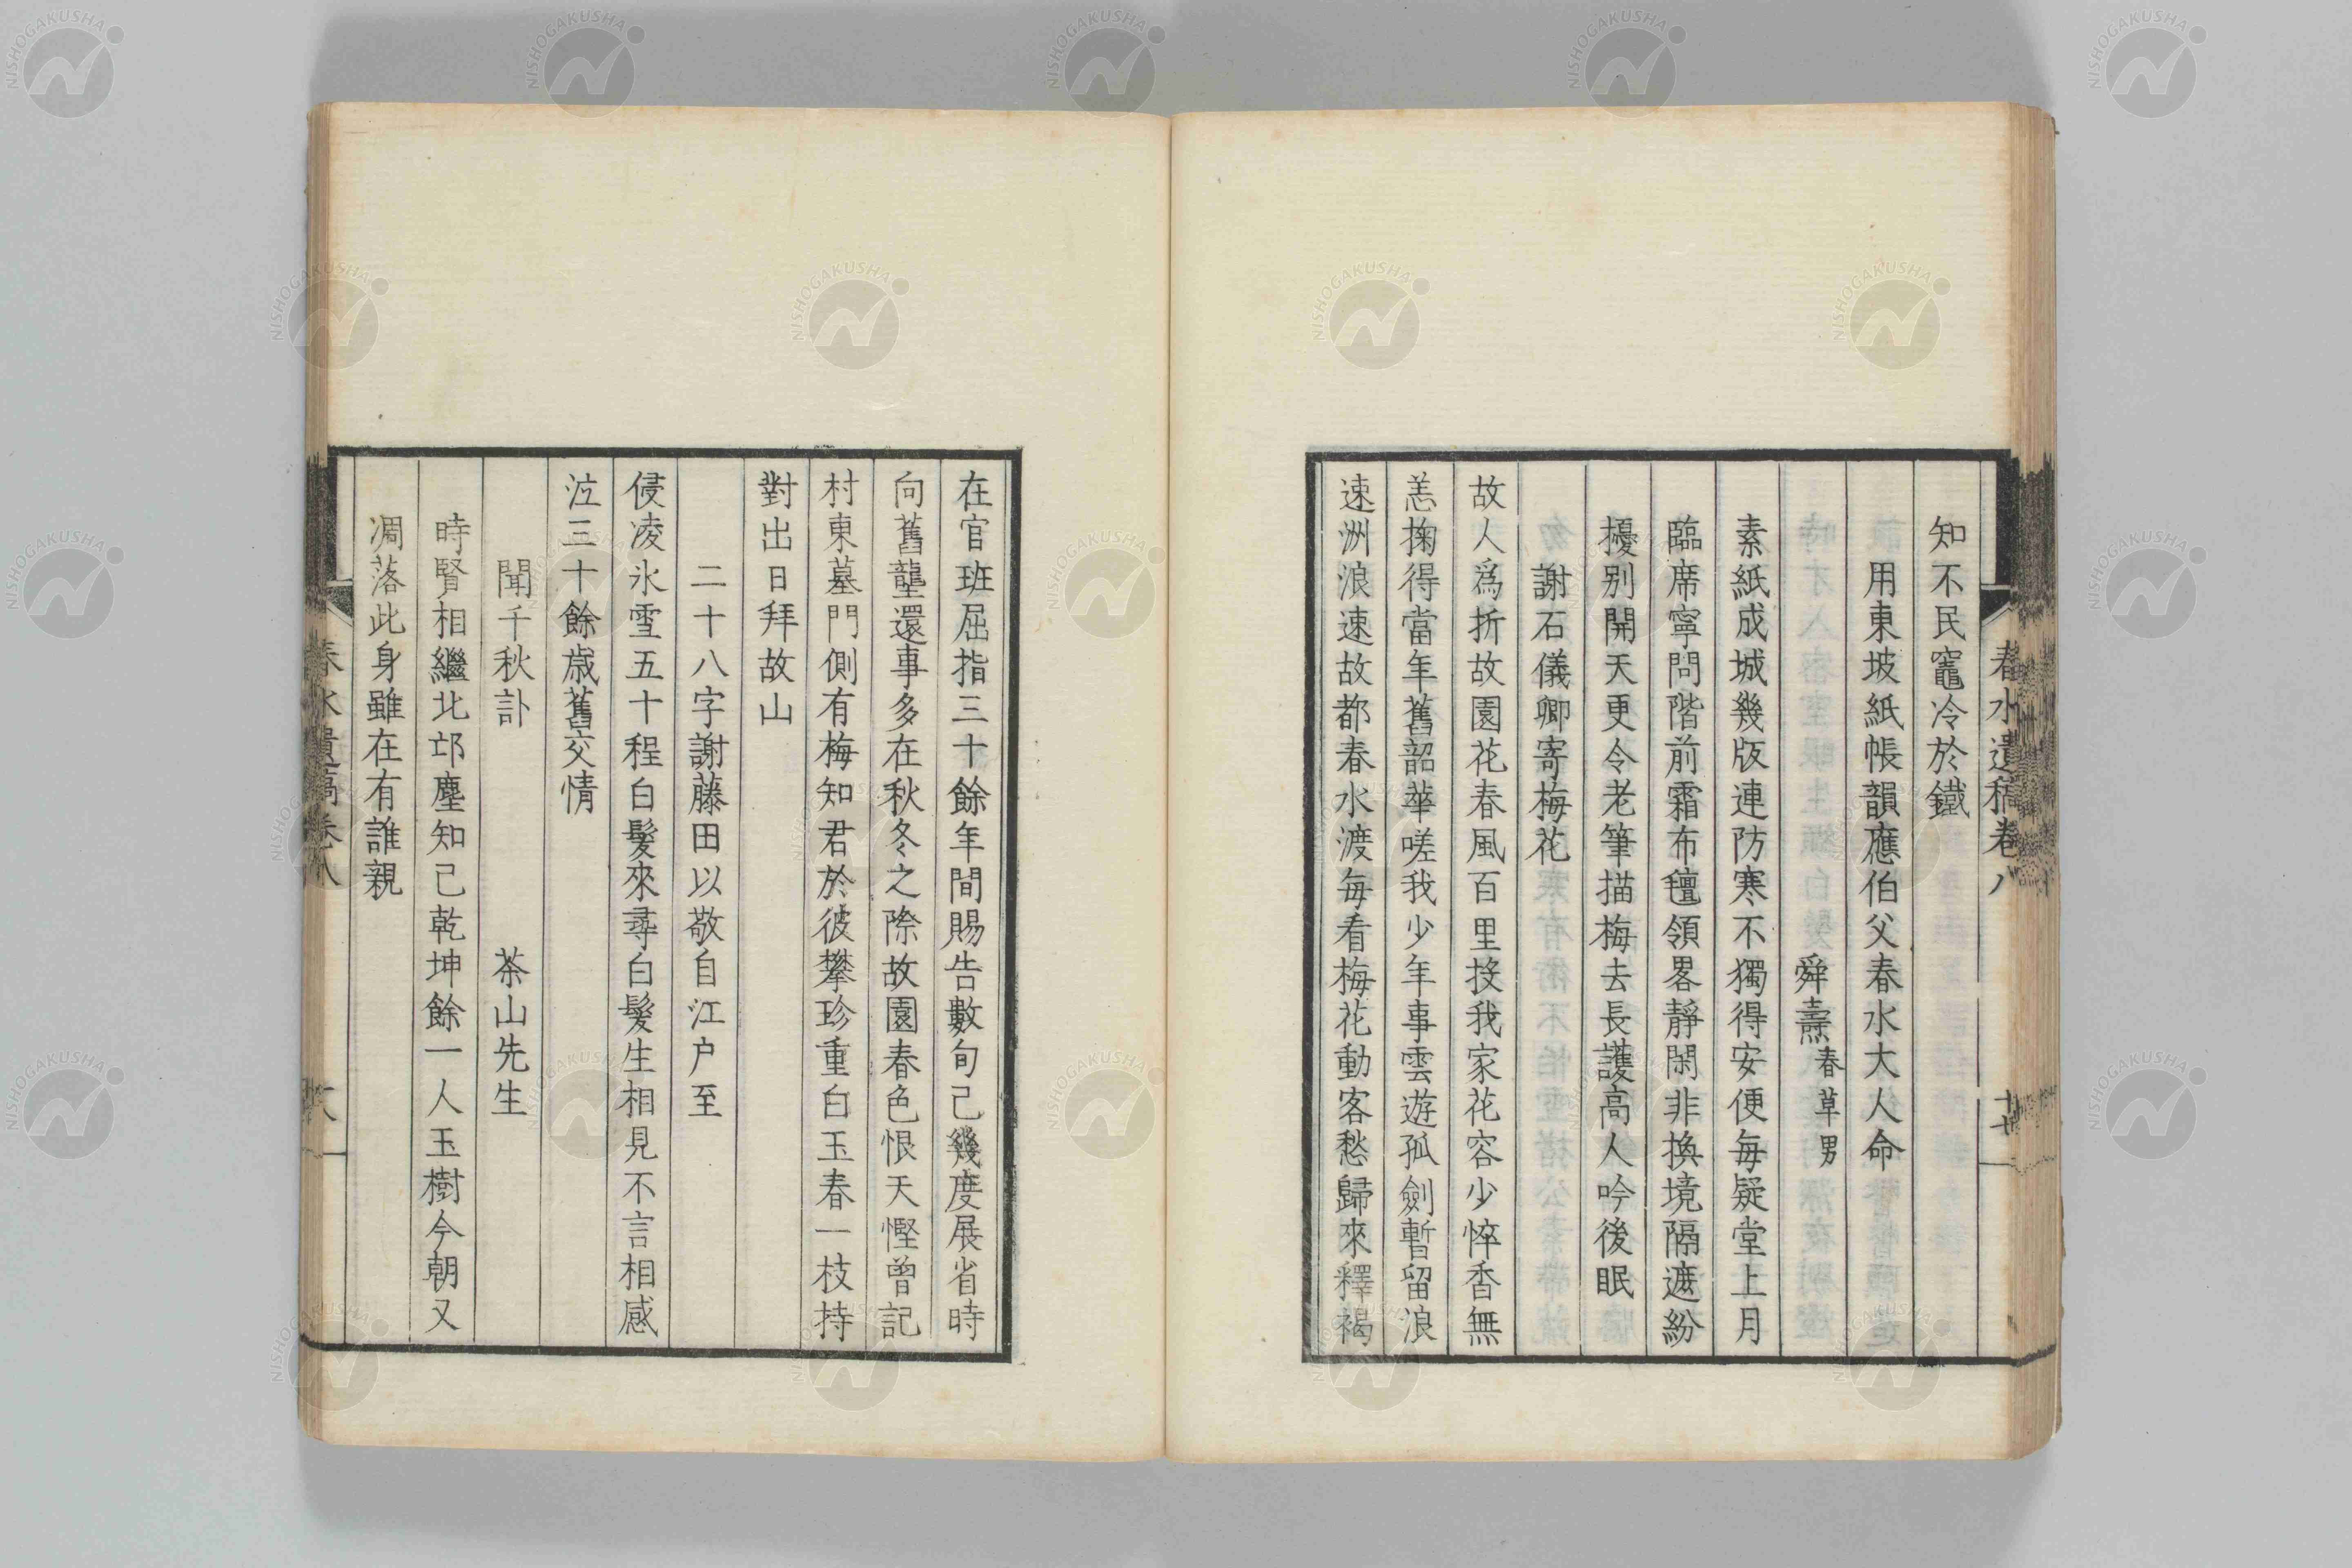 春水遺稿卷八
知不民竈冷於鐵
用東坡紙帳韻應伯父春水大人命
舜燾春草男
素紙成城幾版連防寒不獨得安便每疑堂上月
臨席寧問階前霜布氊領畧靜閑非換境隔遮紛
擾别開天更令老筆描梅去長護高人吟後眠
謝石儀卿寄梅花
故人爲折故園花春風百里投我家花容少悴香無
恙掬得當年舊韶華嗟我少年事雲遊孤劍暫留浪
速洲浪速故都春水渡每看梅花動客愁歸來釋褐
在官班屈指三十餘年間賜告數旬己幾度展省時
向舊壟還事多在秋冬之際故園春色恨天慳曾記
村東墓門側有梅知君於彼攀珍重白玉春一枝持
對出日拜故山
二十八字謝藤田以敬自江户至
侵凌氷雪五十程白髮來尋白髮生相見不言相感
泣三十餘歲舊交情
聞千秋訃
茶山先生
時賢相繼北邙塵知己乾坤餘一人玉樹今朝又
凋落此身雖在有誰親
春水遺稿卷八